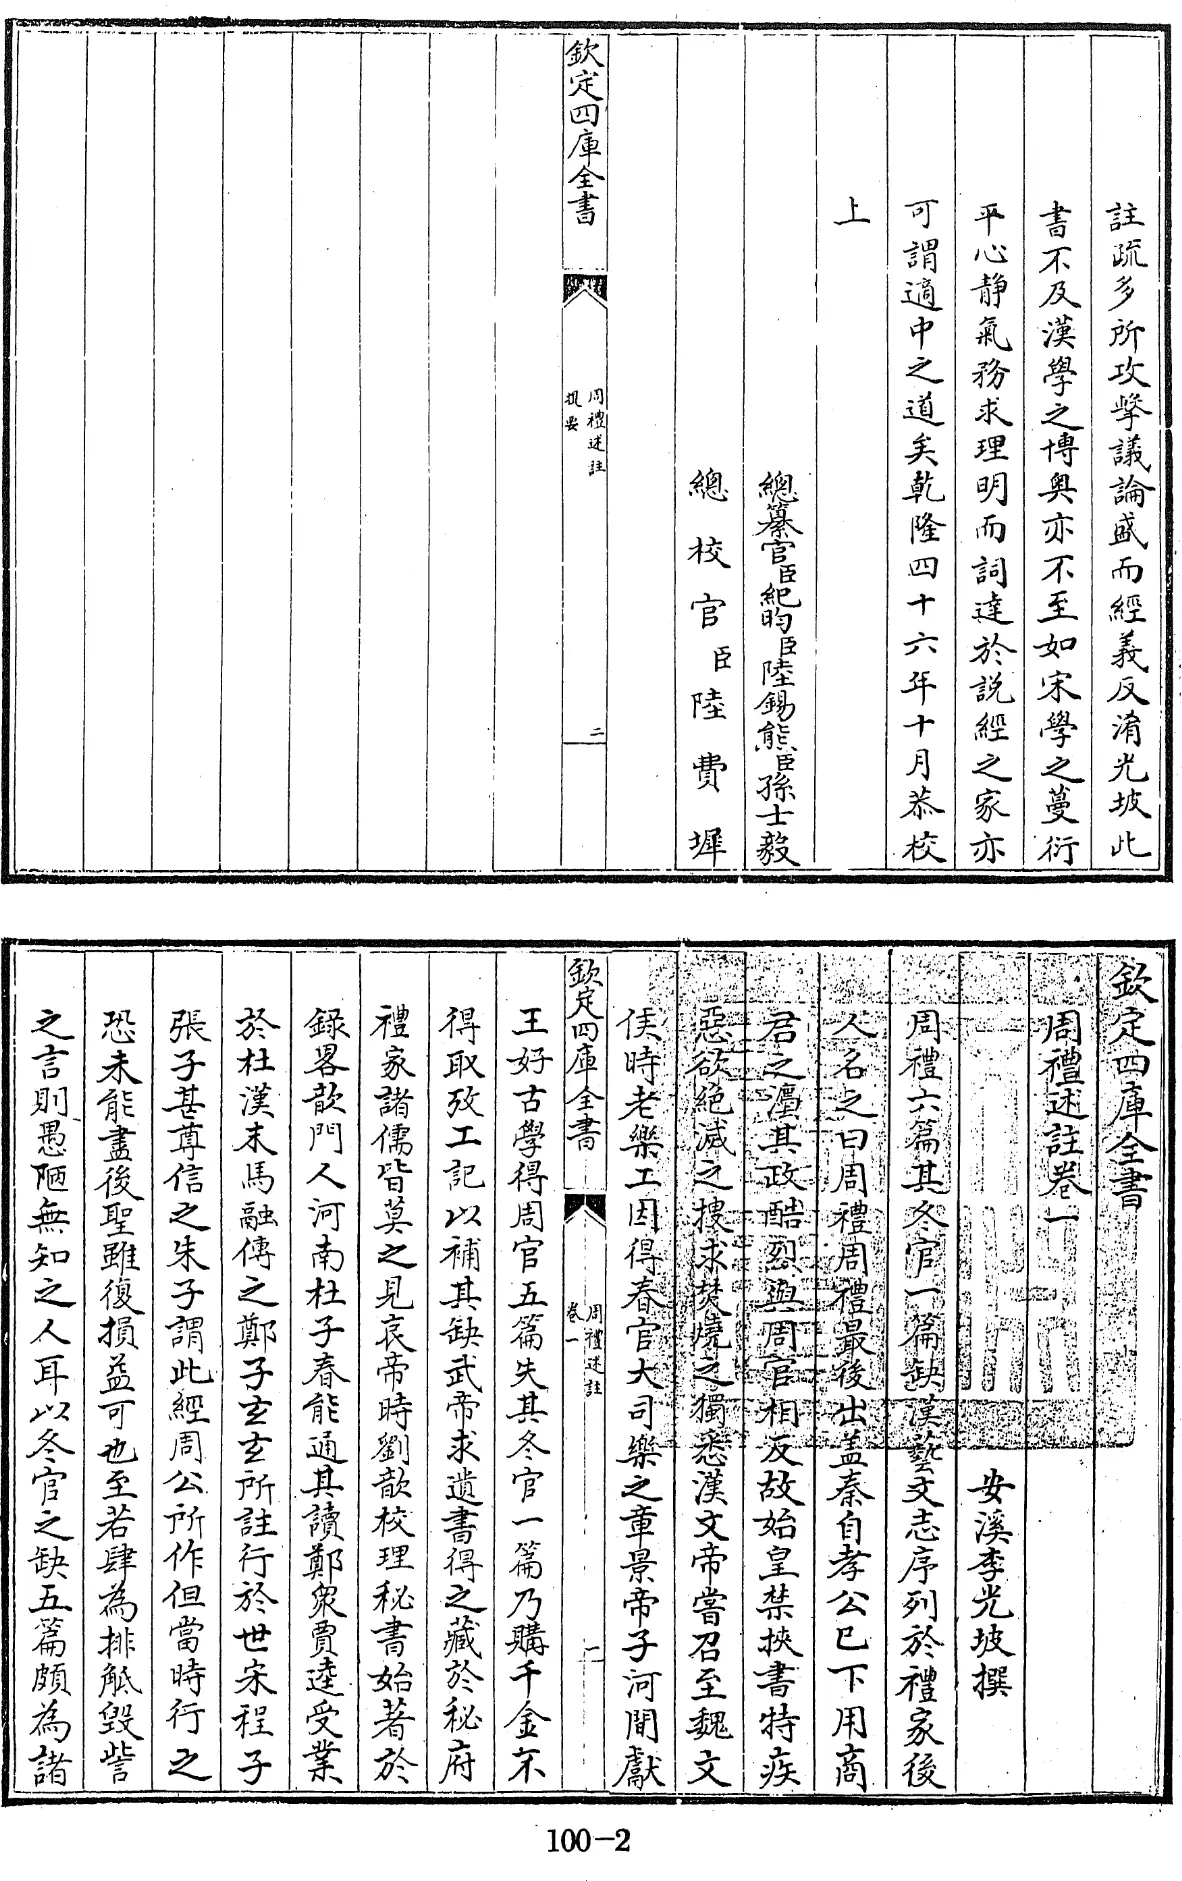 註疏多所攻擊議論盛而經義反淆光坡此
書不及漢學之博奥亦不至如宋學之蔓衍
平心静氣務求理明而詞達於説經之家亦
可謂適中之道矣乾隆四十六年十月恭校
上
總纂官臣紀昀臣陸錫熊臣孫士毅
總校官臣陸費墀
欽定四庫全書
周禮述註
提要
二
欽定四庫全書
周禮述註卷一
安溪李光坡撰
周禮六篇其冬官一篇缺漢藝文志序列於禮家後
人名之曰周禮周禮最後出盖秦自孝公已下用商
君之灋其政酷烈與周官相反故始皇禁挾書特疾
惡欲絶滅之搜求焚燒之獨悉漢文帝嘗召至魏文
侯時老樂工因得春官大司樂之章景帝子河間獻
欽定四庫全書
周禮述註
卷一
一
王好古學得周官五篇失其冬官一篇乃購千金不
得取攷工記以補其缺武帝求遺書得之藏於秘府
禮家諸儒皆莫之見哀帝時劉歆校理秘書始著於
錄畧歆門人河南杜子春能通其讀鄭衆賈逵受業
於杜漢末馬融傳之鄭子玄玄所註行於世宋程子
張子甚尊信之朱子謂此經周公所作但當時行之
恐未能盡後聖雖復損益可也至若肆為排觝毀訾
之言則愚陋無知之人耳以冬官之缺五篇頗為諸
100-2